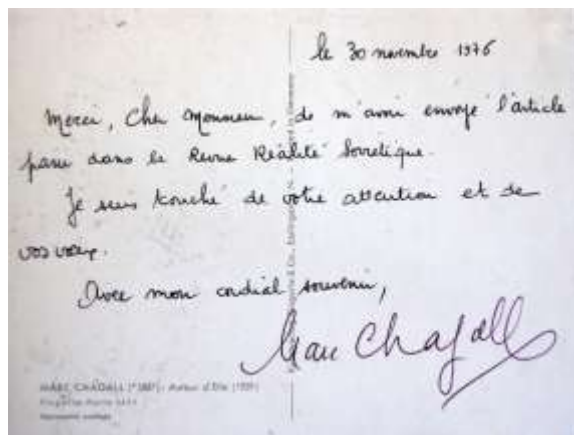 le 30 novembre 1976
Merci, Cher Monsieur, de m'avoir envoyé l'article
paru dans la Revue Réalité Soviétique.
Je suis touché de votre attention et de
vos vœux.
Avec mon cordial souvenir,
Marc Chagall
MARC CHAGALL (*1887) - Autour d'Elle